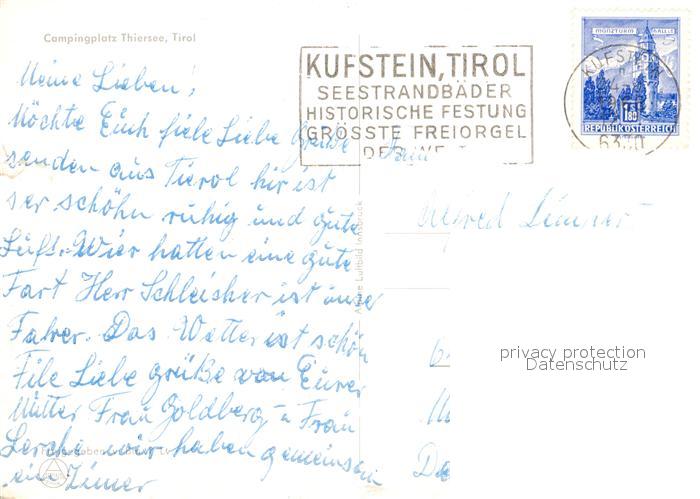 Campingplatz Thiersee, Tirol
KUFSTEIN, TIROL
SEESTRANDBÄDER
HISTORISCHE FESTUNG
GRÖSSTE FREIORGEL
DER WELT
MÜNZTURM HALL
180
REPUBLIK ÖSTERREICH
KUFSTEIN
Meine Lieben!
Möchte Euch fiele Liebe Grüße
senden aus Tierol hir ist
ser schöhn ruhig und gute
Luft. Wier hatten eine gute
Fart Herr Schleisher ist unser
Fahrer. Das Wetter ist schön
File Liebe grüße von Eurer
Mutter Frau Goldberg u Frau
Lerche wir haben gemeinsam
ein Zimer
Alfred
Luftbild Innsbruck
privacy protection
Datenschutz